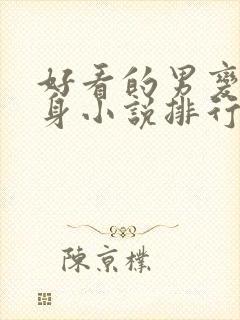 好看的男变
身小说排行
陈京朴